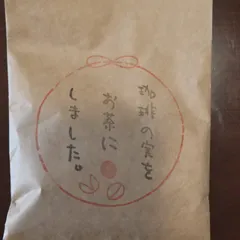 珈琲の実を
お茶に
しました。